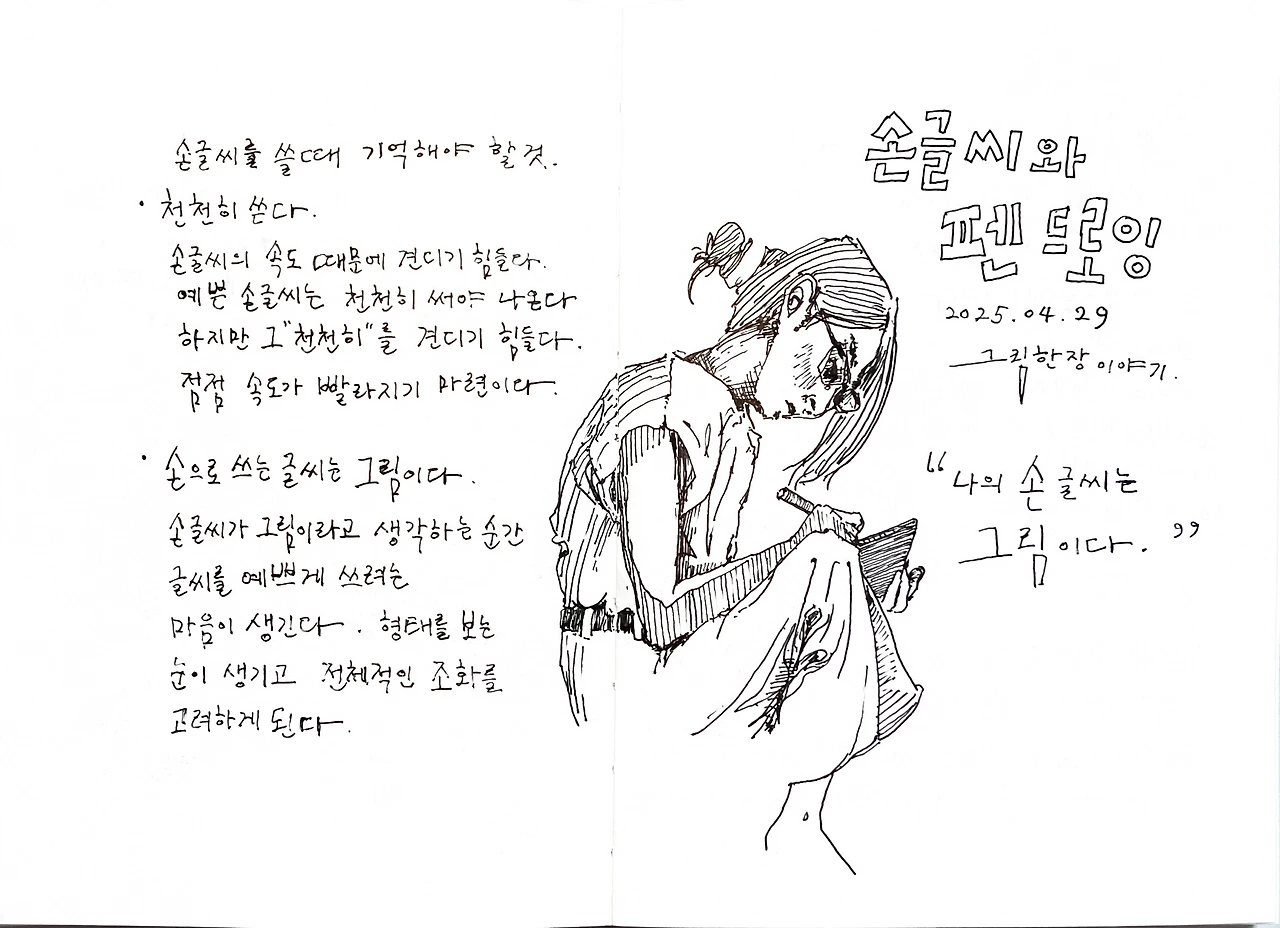 손글씨를 쓸때 기억해야 할것.
· 천천히 쓴다.
손글씨의 속도 때문에 견디기 힘들다.
예쁜 손글씨는 천천히 써야 나온다
하지만 그"천천히"를 견디기 힘들다.
점점 속도가 빨라지기 마련이다.
· 손으로 쓰는 글씨는 그림이다.
손글씨가 그림이라고 생각하는 순간
글씨를 예쁘게 쓰려는
마음이 생긴다. 형태를 보는
눈이 생기고 전체적인 조화를
고려하게 된다.
손글씨와
펜 드로잉
2025.04.29
그림한장이야기.
"나의 손글씨는
그림이다."